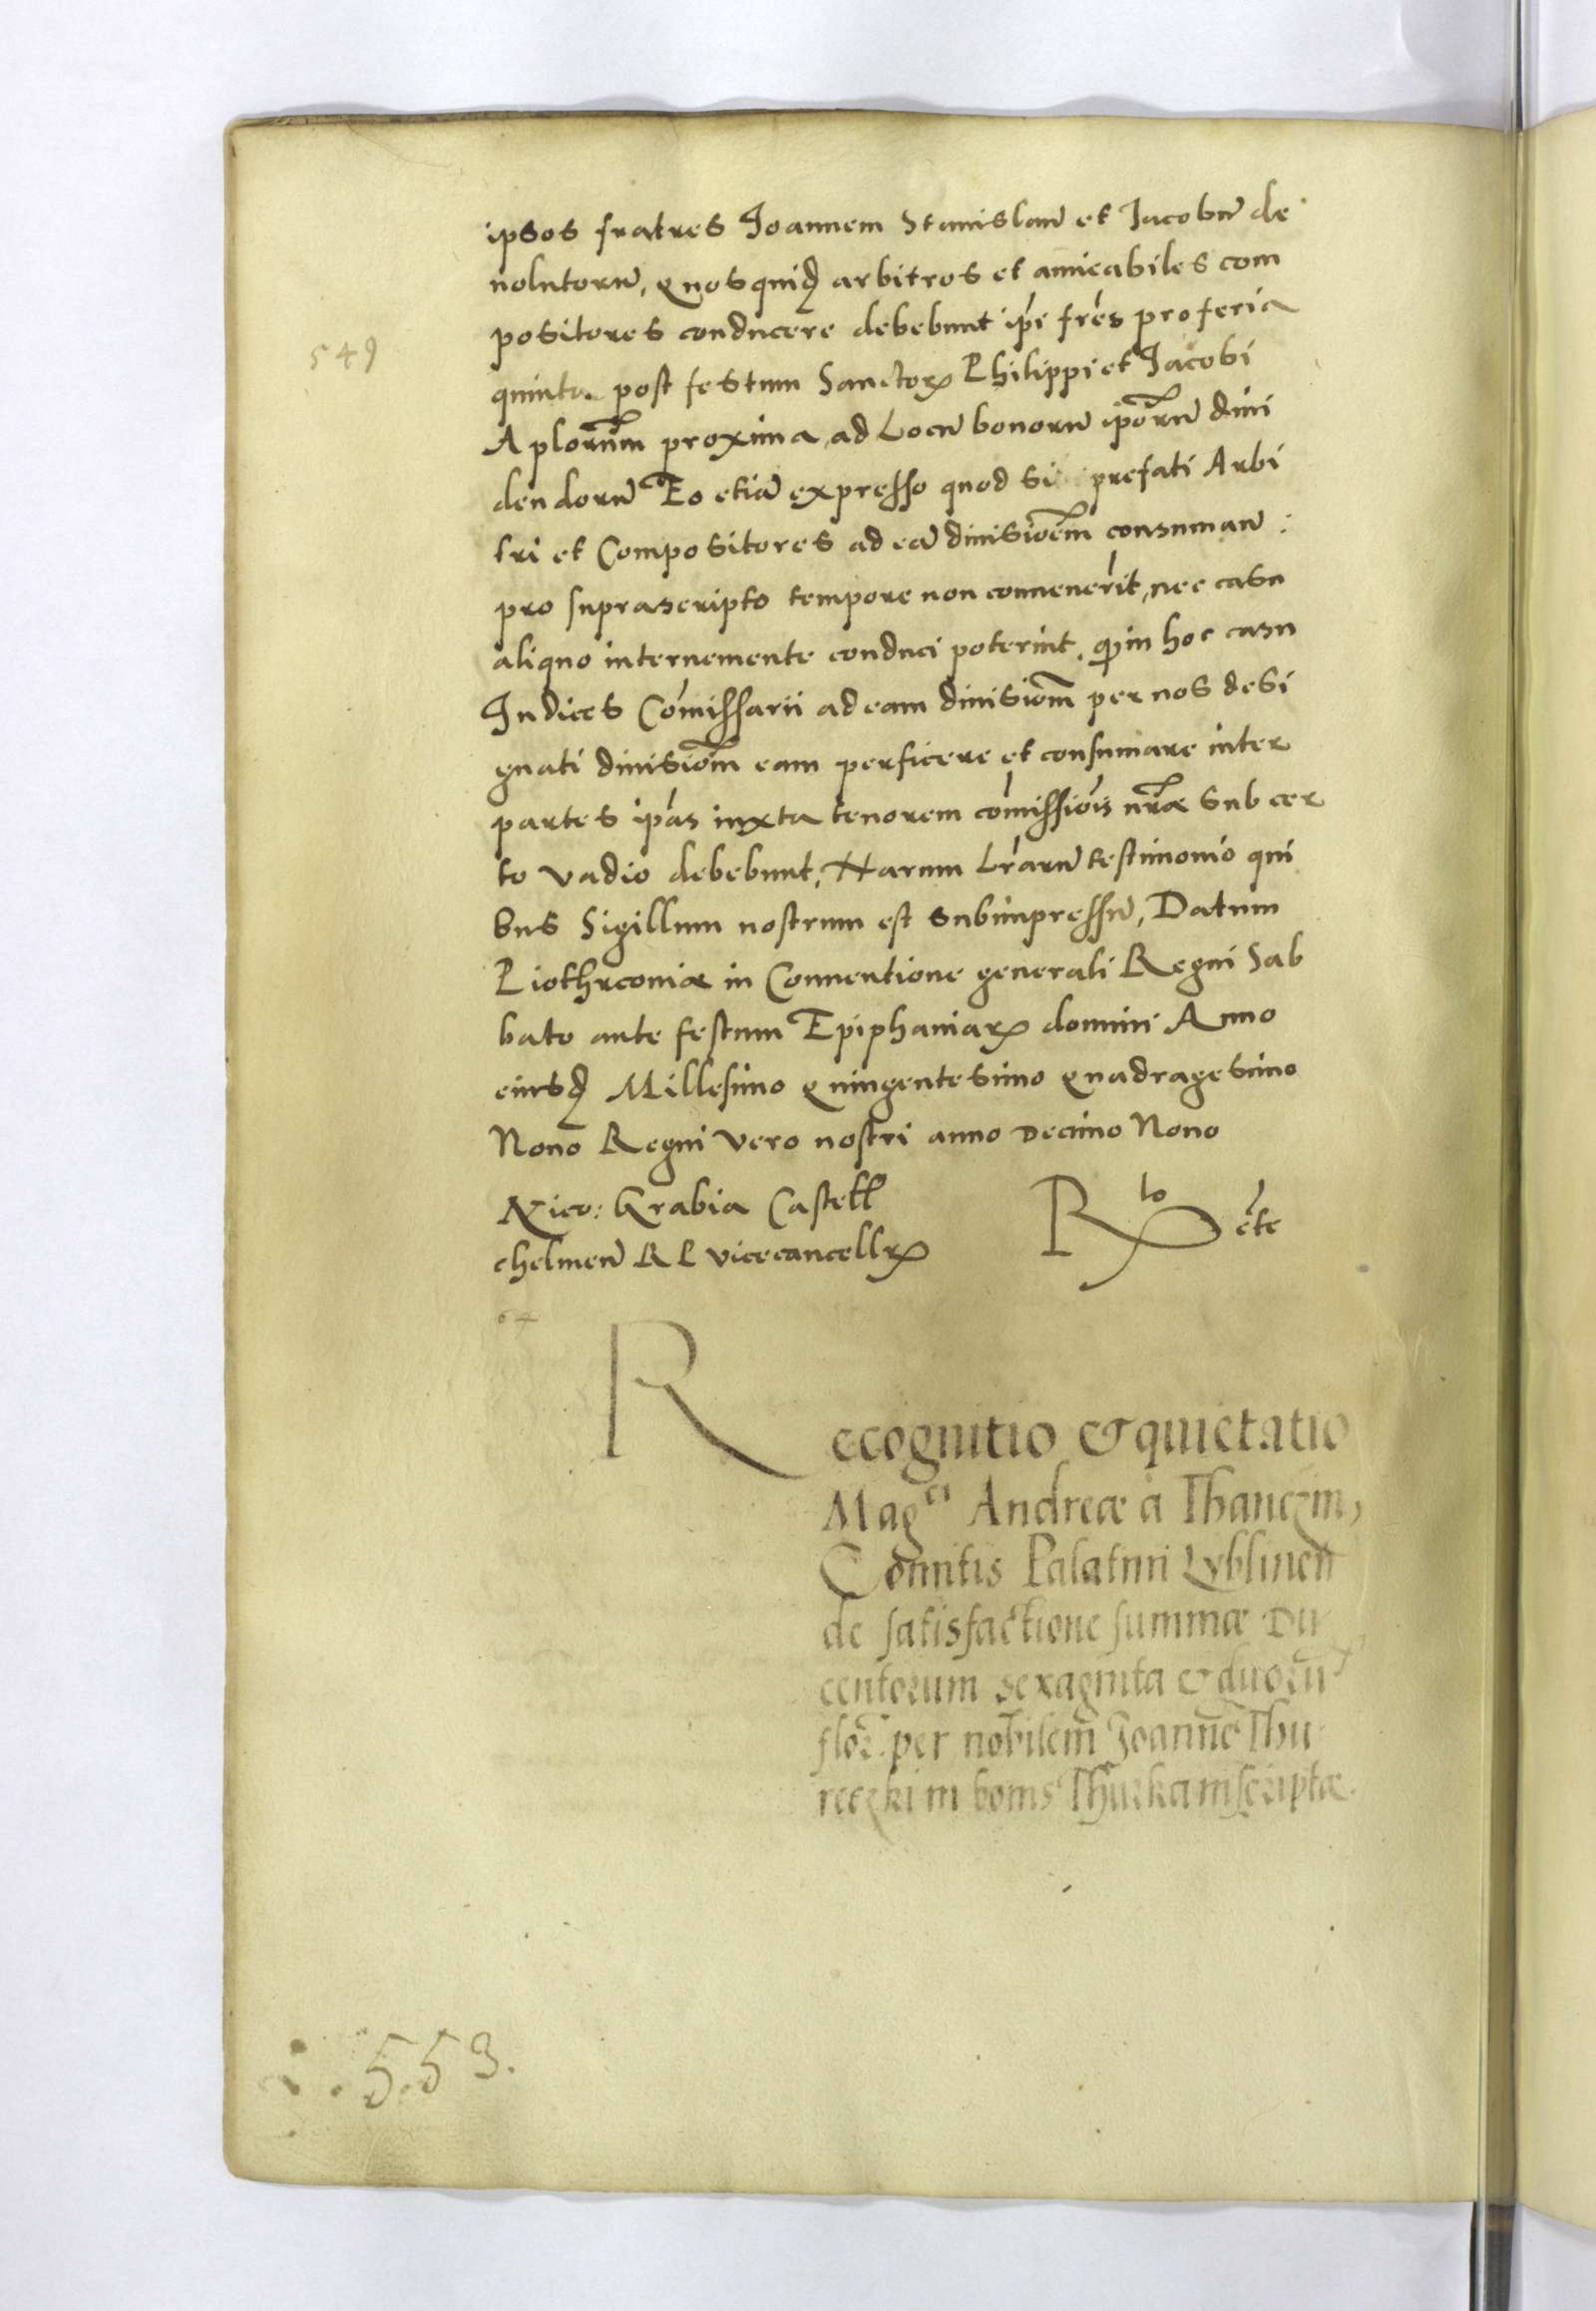 ipsos fratres Joannem Stanislaū et Jacobū de
uolutorū, quos quidȩ arbitros et amicabiles com
positores conducere debebunt ip̄i fr̄es pro feria
549
quinta post festum Sanctorꝝ Philippi et Jacobi
Aplorum̄ proxima, ad Locū bonorū ip̄orū diui
dendorū Eo etiā expresso quod si prefati Arbi
tri et Compositores ad eā diuisioēm consumanꝰ
pro suprascripto tempore non conuenerīt, nec casu
aliquo interuemente conduci poterint, qꝫ in hoc casu
Iudices Com̄issarii ad eam diuisiōm per nos desi
gnati diuisiōm eam perficere et consum̄are inter
partes ip̄as iuxta tenorem com̄issiōis nr̄æ sub cer
to vadio debebunt, Harum Lr̄arū testimonio qui
bus Sigillum nostrum est subimpressū, Datum
Piothrcouiæ in Conuentione generali Regni Sab
bato ante festum Epiphaniarꝝ domini Anno
eiusdȩ Millesimo quingentesimo quadragesimo
Nono Regni vero nostri anno decimo Nono
Nico: Grabia Castell̄
chelmen̄ R P vicecancellrꝝ
R lo ꝝ ēte
64
Recognitio & quietatio
Mag^ci Andreæ à Thanczin,
Comitis Palatini Lvblinen̄
de satisfactione summæ Du
centorum sexaginta & duorū
flor̄. per nobilem̄ Joannē Thu
reczki in bonis Thurka inscriptæ.
553.